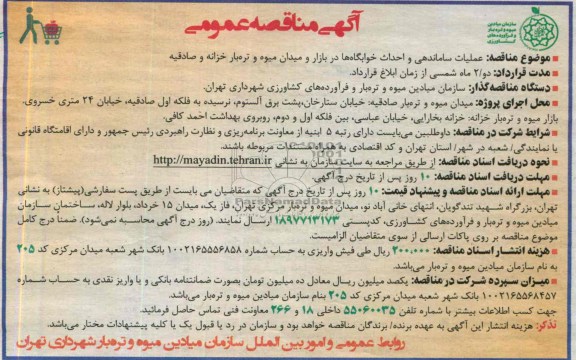 آگهی مناقصه عمومی
سازمان میادین
میوه و تره‌بار
و فرآورده‌های
کشاورزی
موضوع مناقصه: عملیات ساماندهی و احداث خوابگاه‌ها در بازار و میدان میوه و تره‌بار خزانه و صادقیه
مدت قرارداد: دو/۲ ماه شمسی از زمان ابلاغ قرارداد.
دستگاه مناقصه‌گذار: سازمان میادین میوه و تره‌بار و فرآورده‌های کشاورزی شهرداری تهران.
محل اجرای پروژه: میدان میوه و تره‌بار صادقیه: خیابان ستارخان،پشت برق آلستوم، نرسیده به فلکه اول صادقیه، خیابان ۲۴ متری خسروی.
بازار میوه و تره‌بار خزانه: خزانه بخارایی، خیابان عباسی، بین فلکه اول و دوم، روبروی بهداشت احمد کافی.
شرایط شرکت در مناقصه: داوطلبین می‌بایست دارای رتبه ۵ ابنیه از معاونت برنامه‌ریزی و نظارت راهبردی رئیس جمهور و دارای اقامتگاه قانونی
یا نمایندگی/ شعبه در شهر/ استان تهران و کد اقتصادی به همراه مستندات مربوطه باشند.
نحوه دریافت اسناد مناقصه: از طریق مراجعه به سایت سازمان به نشانی http://mayadin.tehran.ir
مهلت دریافت اسناد مناقصه: ۱۰ روز پس از تاریخ درج آگهی.
مهلت ارائه اسناد مناقصه و پیشنهاد قیمت: ۱۰ روز پس از تاریخ درج آگهی که متقاضیان می بایست از طریق پست سفارشی(پیشتاز) به نشانی
تهران، بزرگراه شهید تندگویان، انتهای خانی آباد نو، میدان میوه و تره‌بار مرکزی تهران، فاز یک، میدان ۱۵ خرداد، بلوار لاله، ساختمان سازمان
میادین میوه و تره‌بار و فرآورده‌های کشاورزی، کدپستی ۱۸۹۷۷۱۳۱۷۳ ارسال نمایند. (روز درج آگهی محاسبه نمی‌شود). ضمنا درج کامل
موضوع مناقصه بر روی پاکات ارسالی از سوی متقاضیان الزامیست.
هزینه انتشار اسناد مناقصه: ۲۰۰.۰۰۰ ریال طی فیش واریزی به حساب شماره ۱۰۰۲۱۶۵۵۵۶۸۵۸ بانک شهر شعبه میدان مرکزی کد ۲۰۵
به نام سازمان میادین میوه و تره‌بار می‌باشد.
میزان سپرده شرکت در مناقصه: یکصد میلیون ریال معادل ده میلیون تومان بصورت ضمانتنامه بانکی و یا واریز نقدی به حساب شماره
۱۰۰۲۱۶۵۵۶۸۴۵۷ بانک شهر شعبه میدان مرکزی کد ۲۰۵ بنام سازمان میادین میوه و تره‌بار می‌باشد.
جهت کسب اطلاعات بیشتر با شماره تلفن ۵۵۰۶۰۰۳۵ داخلی ۱۸ و ۲۶۶ معاونت فنی تماس حاصل فرمائید.
تذکر: هزینه انتشار این آگهی به عهده برنده/ برندگان مناقصه خواهد بود و سازمان در رد یا قبول یک یا کلیه پیشنهادات مختار می‌باشد.
روابط عمومی و امور بین الملل سازمان میادین میوه و تره‌بار شهرداری تهران